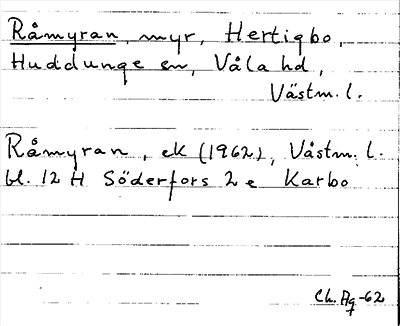 Råmyran, myr, Hertigbo,
Huddunge sn, Våla hd,
Västm. l.
Råmyran, ek (1962), Västm. l.
bl. 12 H Söderfors 2 e Karbo
Ch. Ag -62